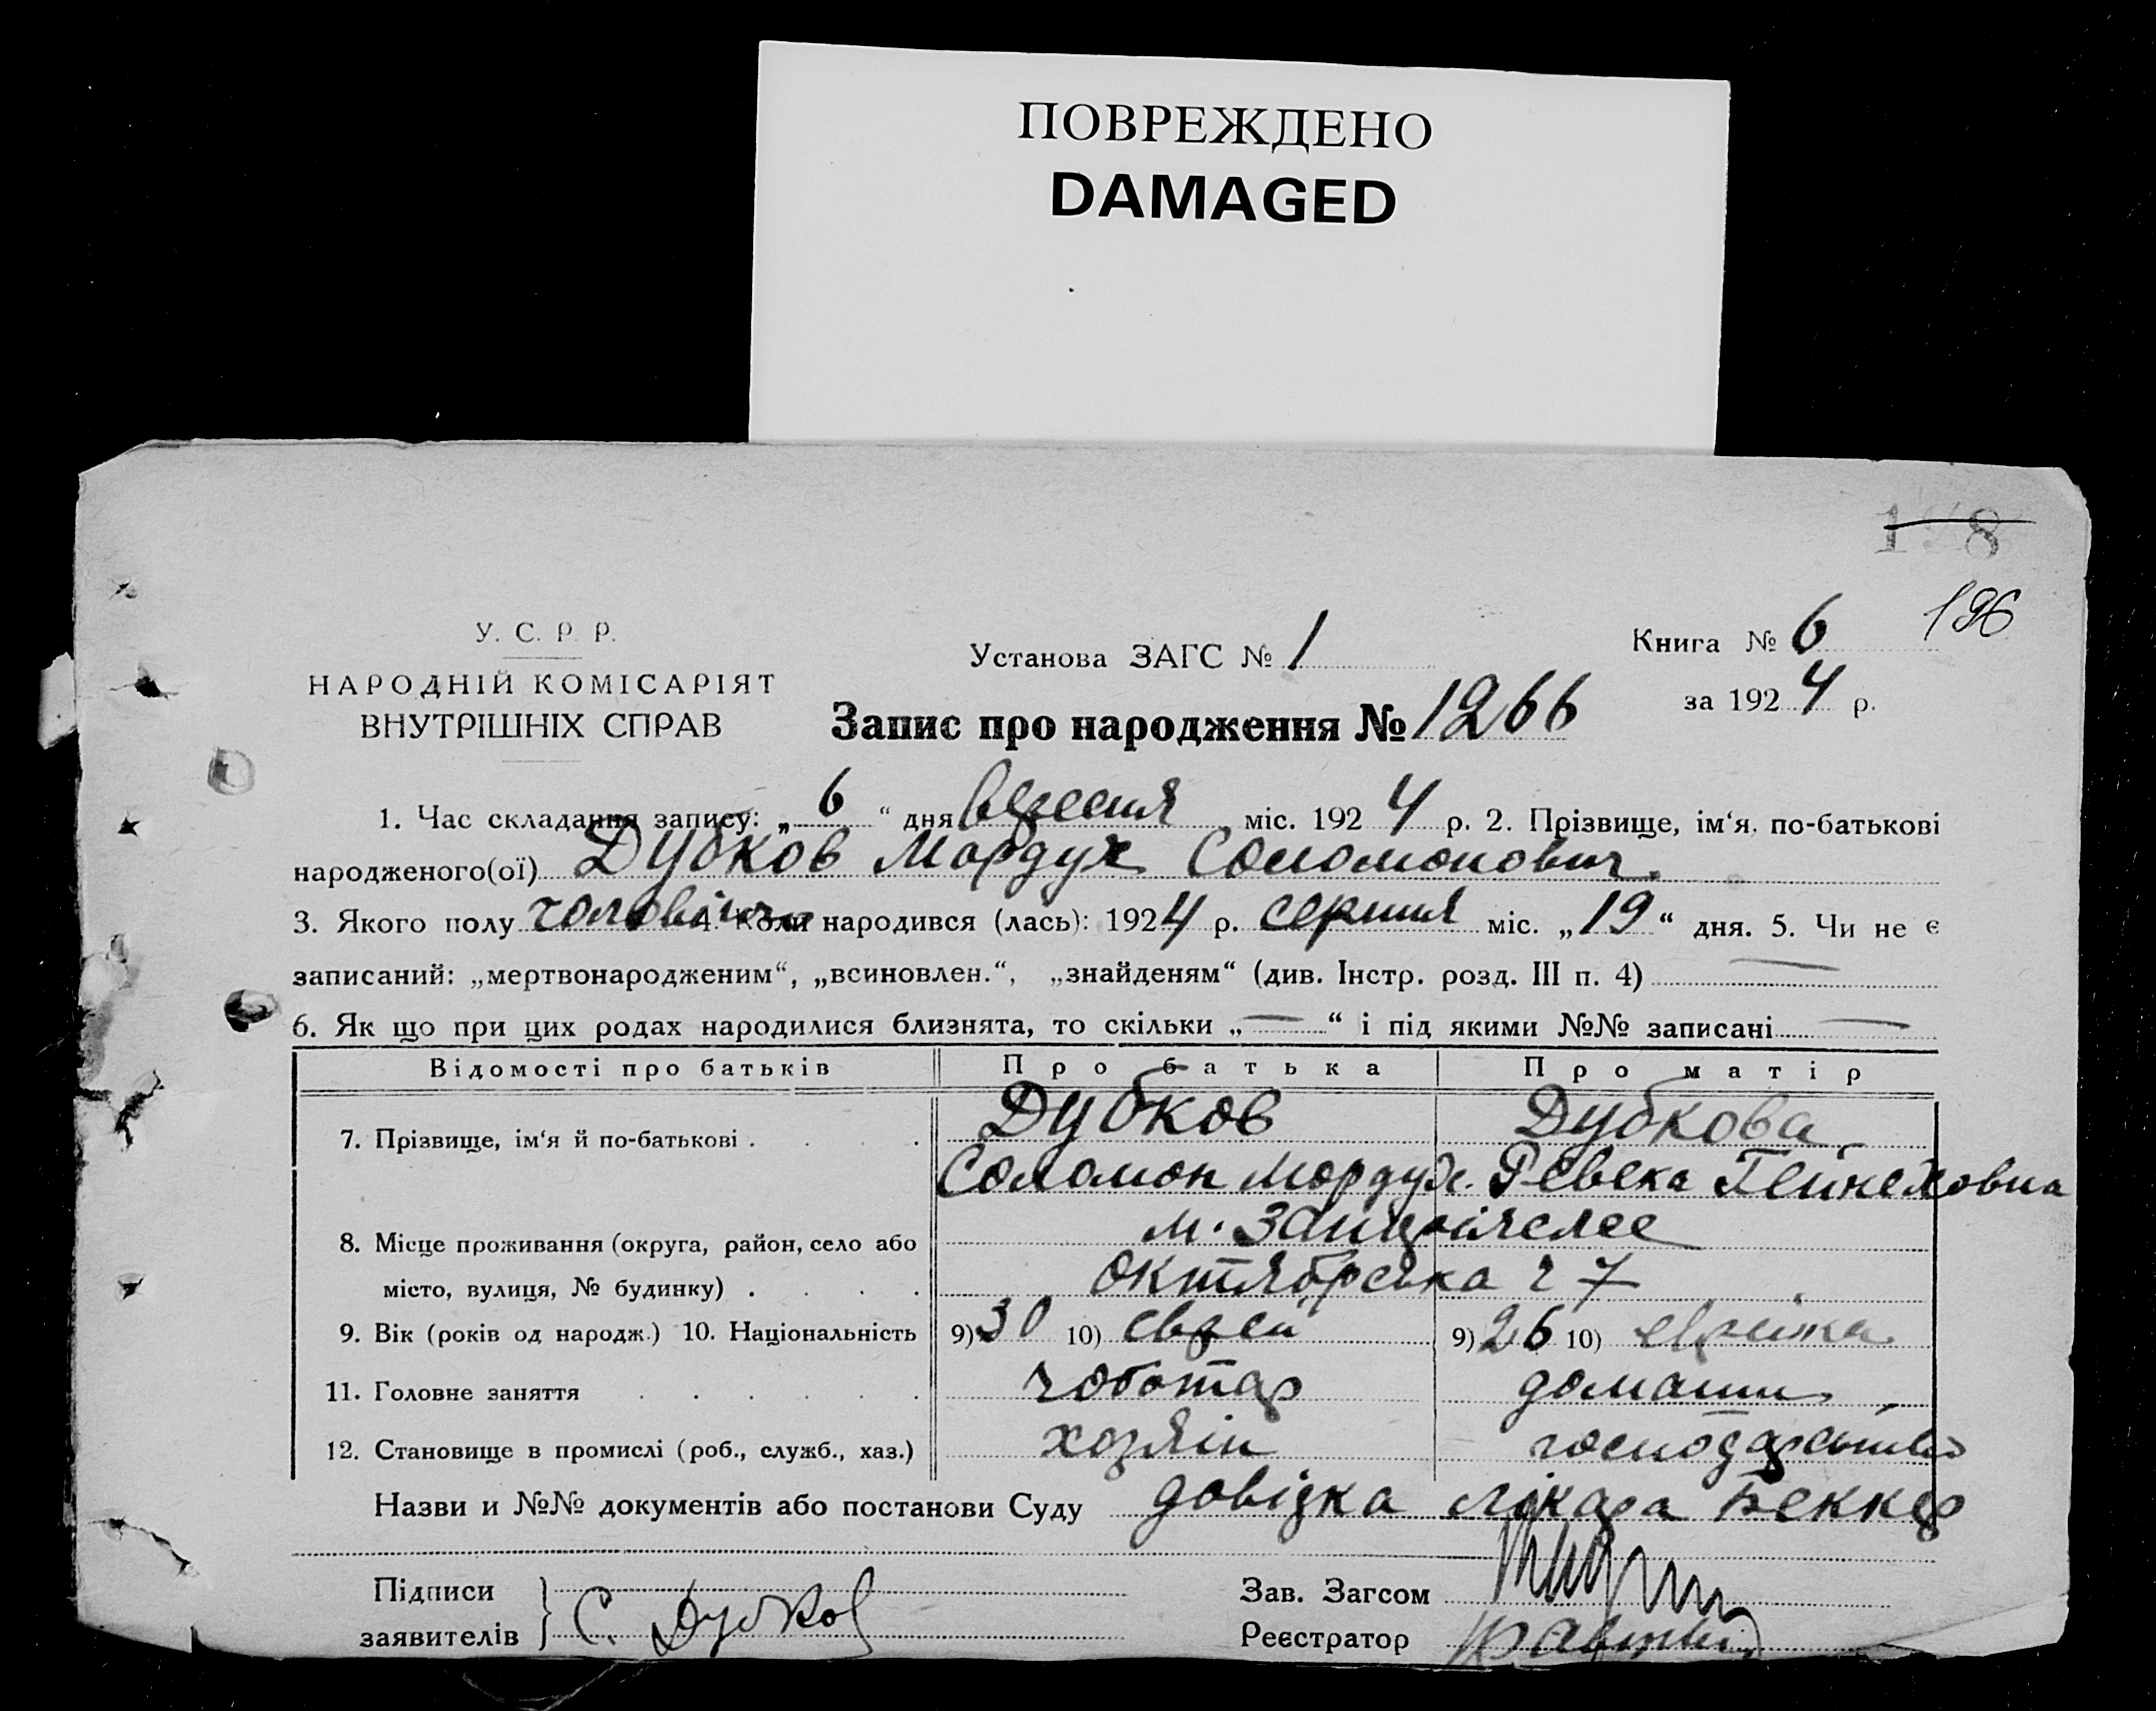 ПОВРЕЖДЕНО
DAMAGED
1 8
196
У. С. Р. Р.
НАРОДНІЙ КОМІСАРІЯТ
ВНУТРІШНІХ СПРАВ
Установа ЗАГС № 1
Книга № 6
за 1924 р.
Запис про народження № 1266
1. Час складання запису: „ 6 “ дня вересня міс. 1924 р. 2. Прізвище, ім‘я, по-батькові
народженого(ої) Дубков Мордух Соломонович.
3. Якого полу чоловічи 4. Коли народився (лась): 1924 р. серпня міс. „ 19 “ дня. 5. Чи не є
записаний: „мертвонародженим“, „всиновлен.“, „знайденям“ (див. Інстр. розд. III п. 4) —
6. Як що при цих родах народилися близнята, то скільки „ — “ і під якими №№ записані —
Відомості про батьків Про батька Про матір
7. Прізвище, ім‘я й по-батькові . . . . Дубков Дубкова
Соломон Мордух. Ревека Гейнеховна
8. Місце проживання (округа, район, село або м.
місто, вулиця, № будинку) . . . . Октябрська 27
9. Вік (років од народж.) 10. Національність 9) 30 10) єврей 9) 26 10) єврейка
11. Головне заняття . . . . . . чоботар домашн.
12. Становище в промислі (роб., служб., хаз.) хозяїн господарство
Назви и №№ документів або постанови Суду довідка лікаря Беккер
Підписи
заявителів } С. Дубков
Зав. Загсом
Реєстратор